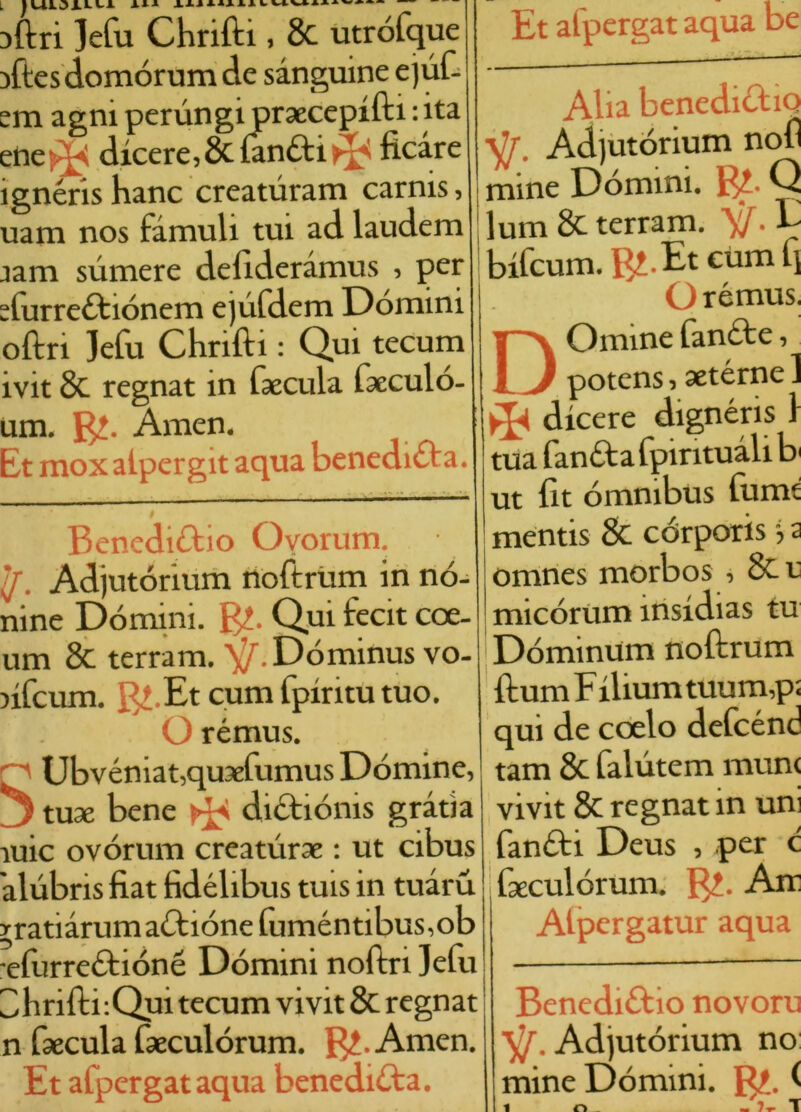 oſtri Jeſu Chriſti, & utróſque
oſtes domórum de sánguine ejúſ-
em agni perúngi præcepíſti: ita
ene ✠ dícere, & ſancti ✠ ficáre
ignéris hanc creatúram carnis,
uam nos fámuli tui ad laudem
uam súmere deſiderámus , per
eſurrectiónem ejúſdem Dómini
oſtri Jeſu Chriſti : Qui tecum
ivit & regnat in ſæcula ſæculó-
um. ℟. Amen.
Et mox aſpergit aqua benedicta.
Benedictio Ovorum.
℣. Adjutórium noſtrum in nó-
mine Dómini. ℟. Qui fecit cœ-
um & terram. ℣. Dóminus vo-
biſcum. ℟. Et cum ſpíritu tuo.
O rémus.
SUbvéniat, quæſumus Dómine,
tuæ bene ✠ dictiónis grátia
huic ovórum creatúræ : ut cibus
ſalúbris fiat fidélibus tuis in tuárū
gratiárum actióne ſuméntibus, ob
reſurrectiónē Dómini noſtri Jeſu
Chriſti: Qui tecum vivit & regnat
n ſæcula ſæculórum. ℟. Amen.
Et aſpergat aqua benedicta.
Et aſpergat aqua be
Alia benedictio
℣. Adjutórium noſt
mine Dómini. ℟. Q
lum & terram. ℣. D
bíſcum. ℟. Et cum ſp
O rémus.
DOmine ſancte,
potens, ætérne
✠ dícere dignéris
tua ſancta ſpirituáli b
ut ſit ómnibus ſumé
mentis & córporis ; a
omnes morbos , & u
micórum insídias tu
Dóminum noſtrum
ſtum Fílium tuum, p
qui de cœlo deſcénd
tam & ſalútem munc
vivit & regnat in uni
ſancti Deus , per
ſæculórum. ℟. Am
Aſpergatur aqua
Benedictio novoru
℣. Adjutórium no
mine Dómini. ℟.